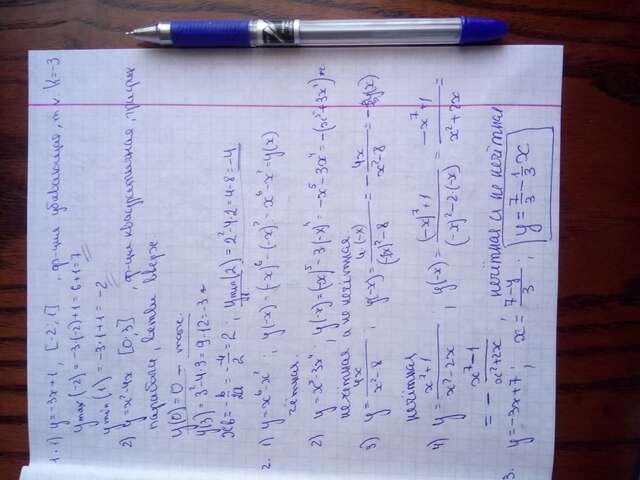 1. 1) y=-3x+1, [-2,1] , ф-ция убывающая, т.к. k=-3
ymax(-2)=-3·(-2)+1=6+1=7
ymin(1)=-3·1+1=-2
2) y=x²-4x [0;3] , ф-ция квадратичная, график
парабола, ветви вверх
y(0)=0 - max.
y(3)=3²-4·3=9-12=-3
xв=-b/2a=-(-4)/2=2 ; ymin(2)=2²-4·2=4-8=-4
2. 1) y=x⁶-x⁴ ; y(-x)=(-x)⁶-(-x)⁴=x⁶-x⁴=y(x)
чётная.
2) y=x⁵-3x⁴ ; y(-x)=(-x)⁵-3(-x)⁴=-x⁵-3x⁴=-(x⁵+3x⁴)
нечётная и не нечётная.
3) y=4x/(x²-8) ; y(-x)=4(-x)/((-x)²-8)=-4x/(x²-8)=-y(x)
нечётная
4) y=(x⁷+1)/(x²-2x) ; y(-x)=((-x)⁷+1)/((-x)²-2·(-x))=(-x⁷+1)/(x²+2x)=
=-(x⁷-1)/(x²+2x) нечётная и не нечётная
3. y=-3x+7 ; x=(7-y)/3 ; y=7/3-1/3x